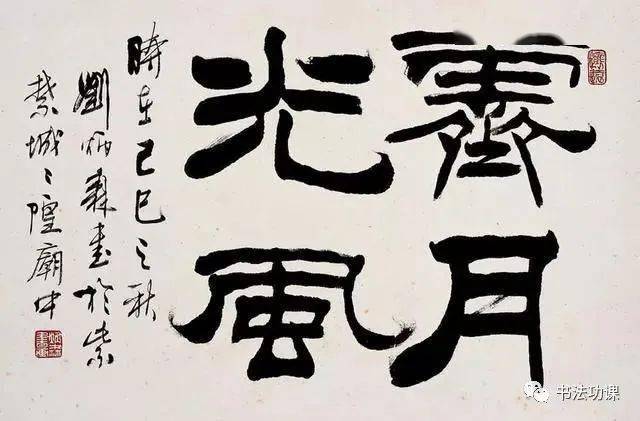 霽月
光風
時在己巳之秋
劉炳森書於紫
禁城〻隍廟中
书法功课